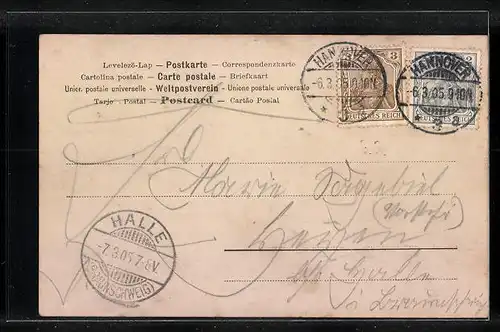 Levelező-Lap — Postkarte — Correspondenzkarte
Cartolina postale — Carte postale — Briefkaart
Unior. postale universelle — Weltpostverein — Unione postale universale
Tarjo - Postal — Postcard — Cartão Postal
HANNOVER
-6.3.05.9-10N.
3
DEUTSCHES REICH
HANNOVER
-6.3.05.9-10N.
* 3 a
REICH
Marie Sagebiel
HALLE
-7.3.05.7-8V.
(BRAUNSCHWEIG)
b/ Halle
i. Braunschw